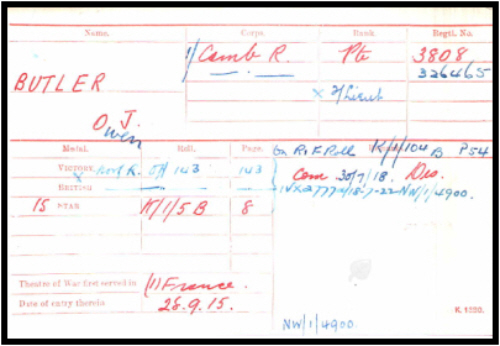 Name. Corps. Rank. Regtl. No.
BUTLER
O. J.
Owen
1/ Camb R. Pte 3808
326465
x 2/Lieut
Medal. Roll. Page.
VICTORY x Norf R. Off 143 143
BRITISH
15 STAR K/1/5 B 8
On R.F. Roll K/1/104 B P54
Com 30/7/18. Dis.
18-7-22 NW/1/4900.
Theatre of War first served in (1) France.
Date of entry therein 28.9.15.
K. 1380.
NW/1/4900